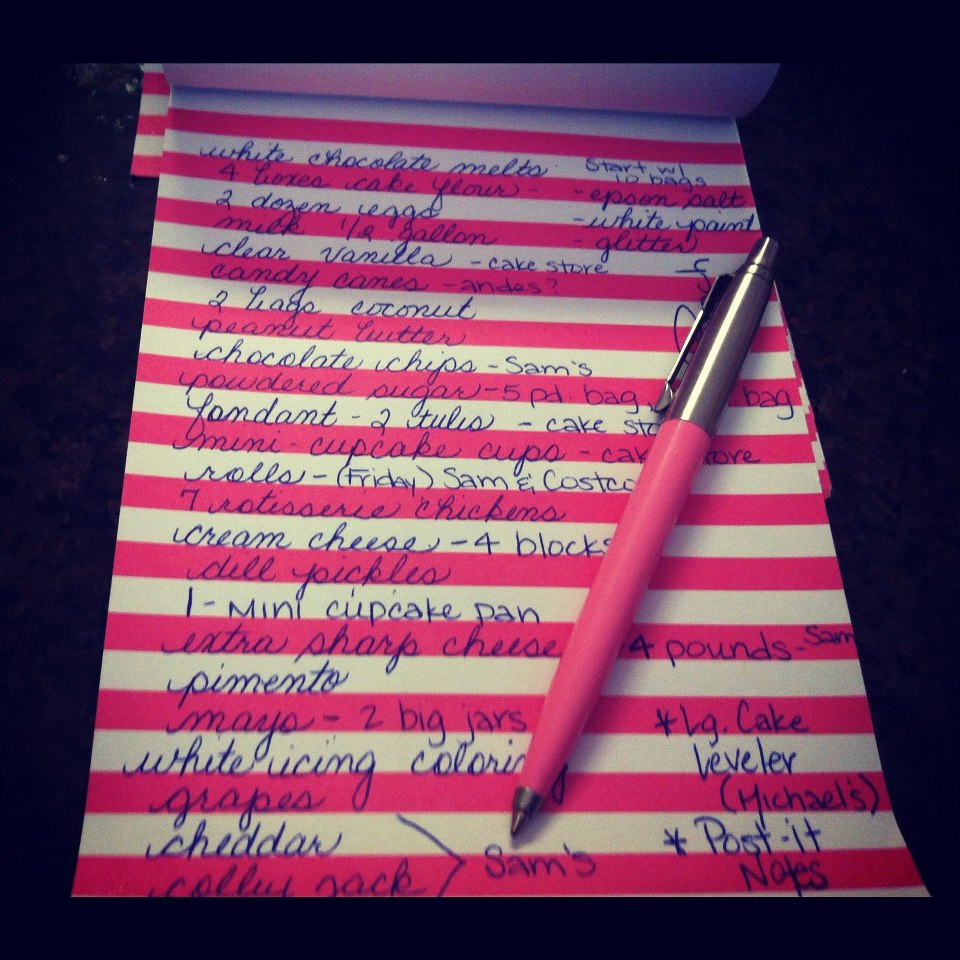 white chocolate melts Start w/
10 bags
4 boxes cake flour - - epson salt
2 dozen eggs - white paint
milk 1/2 gallon - glitter
clear vanilla - cake store
candy canes - andes?
2 bags coconut
peanut butter
chocolate chips - Sam's
powdered sugar - 5 pd. bag bag
fondant - 2 tubs - cake sto
mini cupcake cups - cak tore
rolls - (Friday) Sam & Costco
7 rotisserie chickens
cream cheese - 4 blocks
dill pickles
1 - Mini cupcake pan
extra sharp cheese 4 pounds - Sam
pimento
mayo - 2 big jars
white icing coloring
grapes
cheddar
colby jack
Sam's
* Lg. Cake
Leveler
(Michael's)
* Post-it
Notes